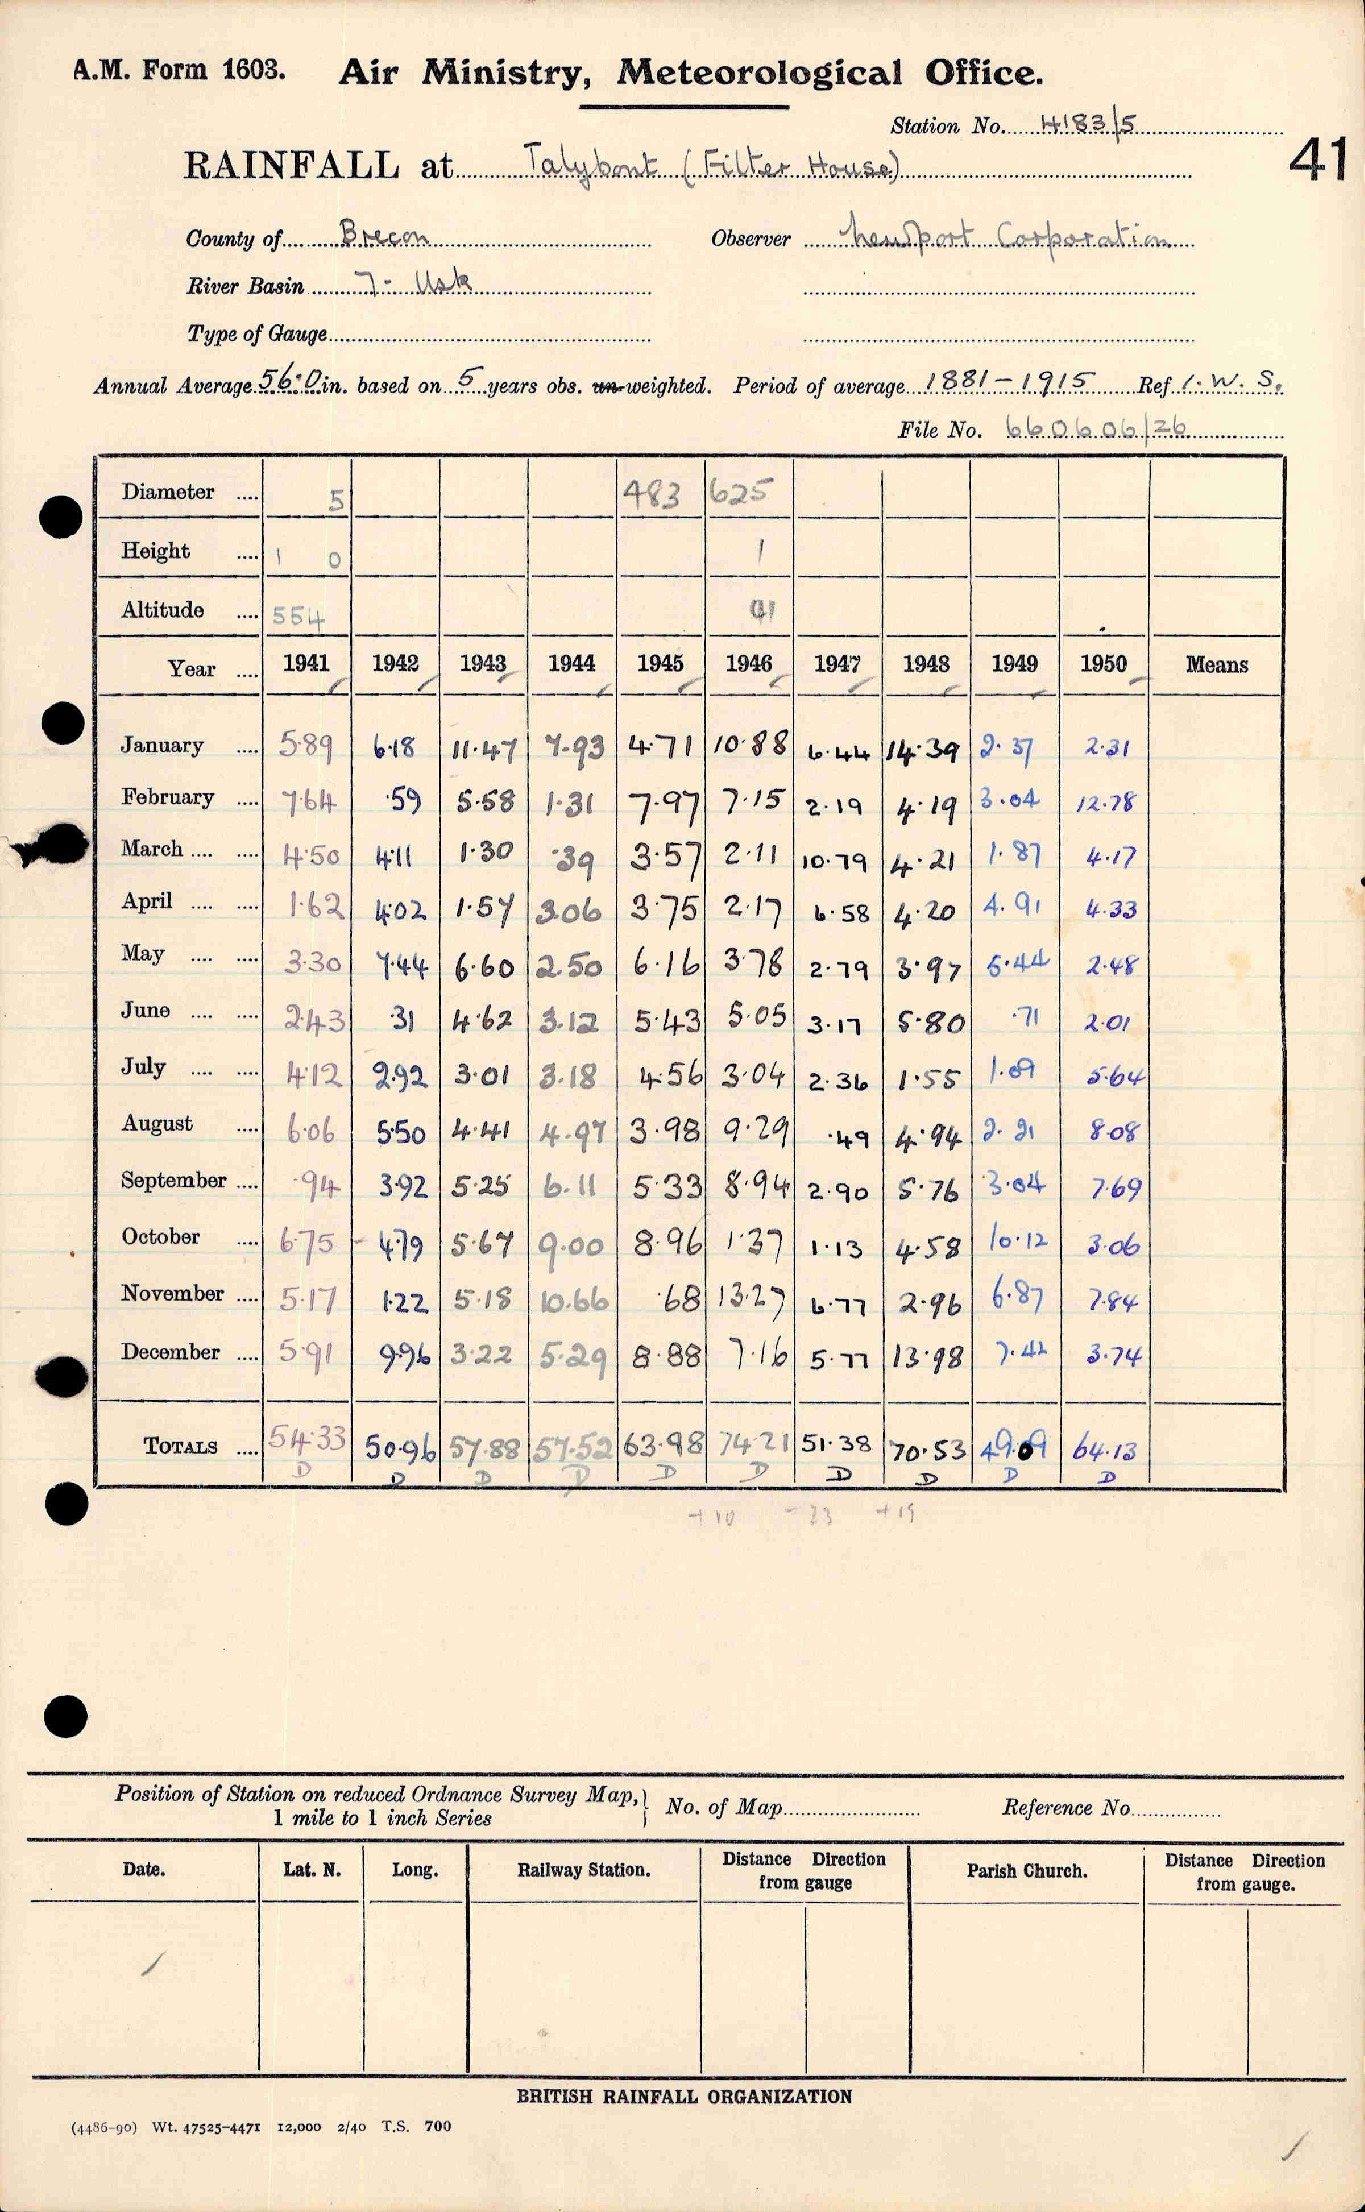 A.M. Form 1603. Air Ministry, Meteorological Office.
Station No. 4183/5
41
RAINFALL at Talybont (Filter House)
County of Brecon Observer Newport Corporation
River Basin 7- Usk
Type of Gauge
Annual Average 56.0 in. based on 5 years obs. un-weighted. Period of average 1881-1915 Ref I.W.S.
File No. 660606/26
Diameter .... 5 483 625
Height .... 1 0 1
Altitude .... 554 41
Year .... 1941 1942 1943 1944 1945 1946 1947 1948 1949 1950 Means
January .... 5.89 6.18 11.47 7.93 4.71 10.88 6.44 14.39 2.37 2.31
February .... 7.64 .59 5.58 1.31 7.97 7.15 2.19 4.19 3.04 12.78
March .... .... 4.50 4.11 1.30 .39 3.57 2.11 10.79 4.21 1.87 4.17
April .... .... 1.62 4.02 1.57 3.06 3.75 2.17 6.58 4.20 4.91 4.33
May .... .... 3.30 7.44 6.60 2.50 6.16 3.78 2.79 3.97 5.44 2.48
June .... .... 2.43 .31 4.62 3.12 5.43 5.05 3.17 5.80 .71 2.01
July .... .... 4.12 2.92 3.01 3.18 4.56 3.04 2.36 1.55 1.09 5.64
August .... 6.06 5.50 4.41 4.97 3.98 9.29 .49 4.94 2.21 8.08
September .... .94 3.92 5.25 6.11 5.33 8.94 2.90 5.76 3.04 7.69
October .... 6.75 4.79 5.67 9.00 8.96 1.37 1.13 4.58 10.12 3.06
November .... 5.17 1.22 5.18 10.66 .68 13.27 6.77 2.96 6.87 7.84
December .... 5.91 9.96 3.22 5.29 8.88 7.16 5.77 13.98 7.42 3.74
TOTALS .... 54.33 50.96 57.88 57.52 63.98 74.21 51.38 70.53 49.09 64.13
D D D D D D D D D D
+10 -23 +19
Position of Station on reduced Ordnance Survey Map, } No. of Map Reference No.
1 mile to 1 inch Series
Date. Lat. N. Long. Railway Station. Distance Direction from gauge Parish Church. Distance Direction from gauge.
BRITISH RAINFALL ORGANIZATION
(4486-90) Wt. 47525-4471 12,000 2/40 T.S. 700